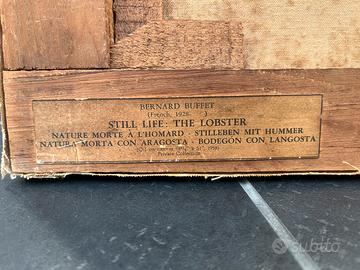 BERNARD BUFFET
(French, 1928- )
STILL LIFE: THE LOBSTER
NATURE MORTE À L'HOMARD · STILLEBEN MIT HUMMER
NATURA MORTA CON ARAGOSTA · BODEGON CON LANGOSTA
Private Collection
subito